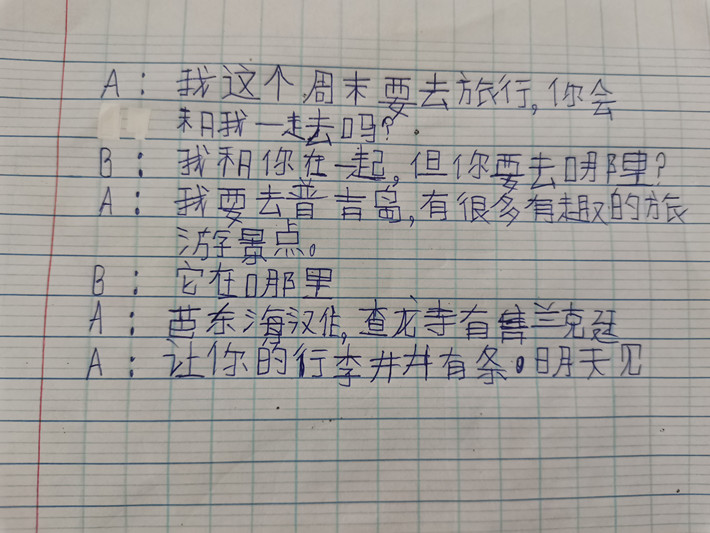 A： 我这个周末要去旅行，你会
和我一起去吗？.
B： 我和你在一起，但你要去哪里？
A： 我要去普吉岛，有很多有趣的旅
游景点。
B： 它在哪里
A： 芭东海汉佐，查龙寺有普兰克廷
A： 让你的行李井井有条。明天见